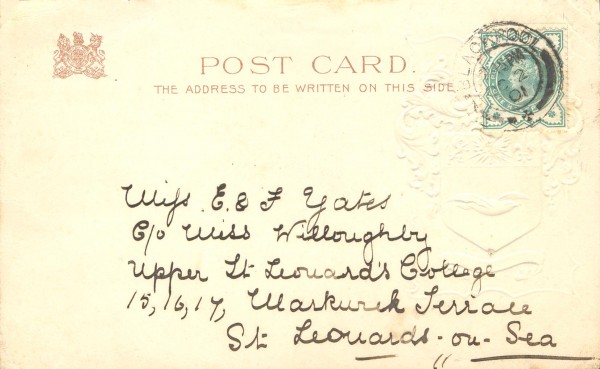 POST CARD.
THE ADDRESS TO BE WRITTEN ON THIS SIDE
BLACKPOOL
PM
2
01
Miss E & F Yates
C/o Miss Willoughby
Upper St Leonard's College
15, 16, 17, Terrace
St Leonards-on-Sea